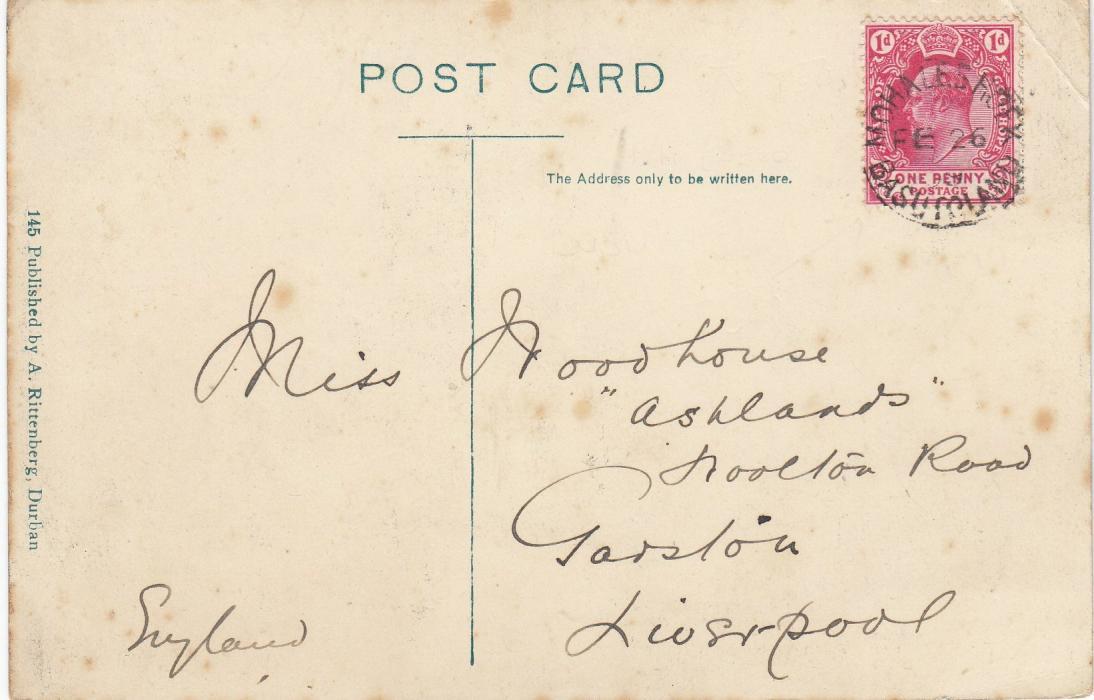 POST CARD
The Address only to be written here.
1d 1d
ONE PENNY
POSTAGE
MOHALES HOEK
FE 26
BASUTOLAND
145 Published by A. Rittenberg, Durban
Miss Woodhouse
"Ashlands"
Woolton Road
Garston
Liverpool
England